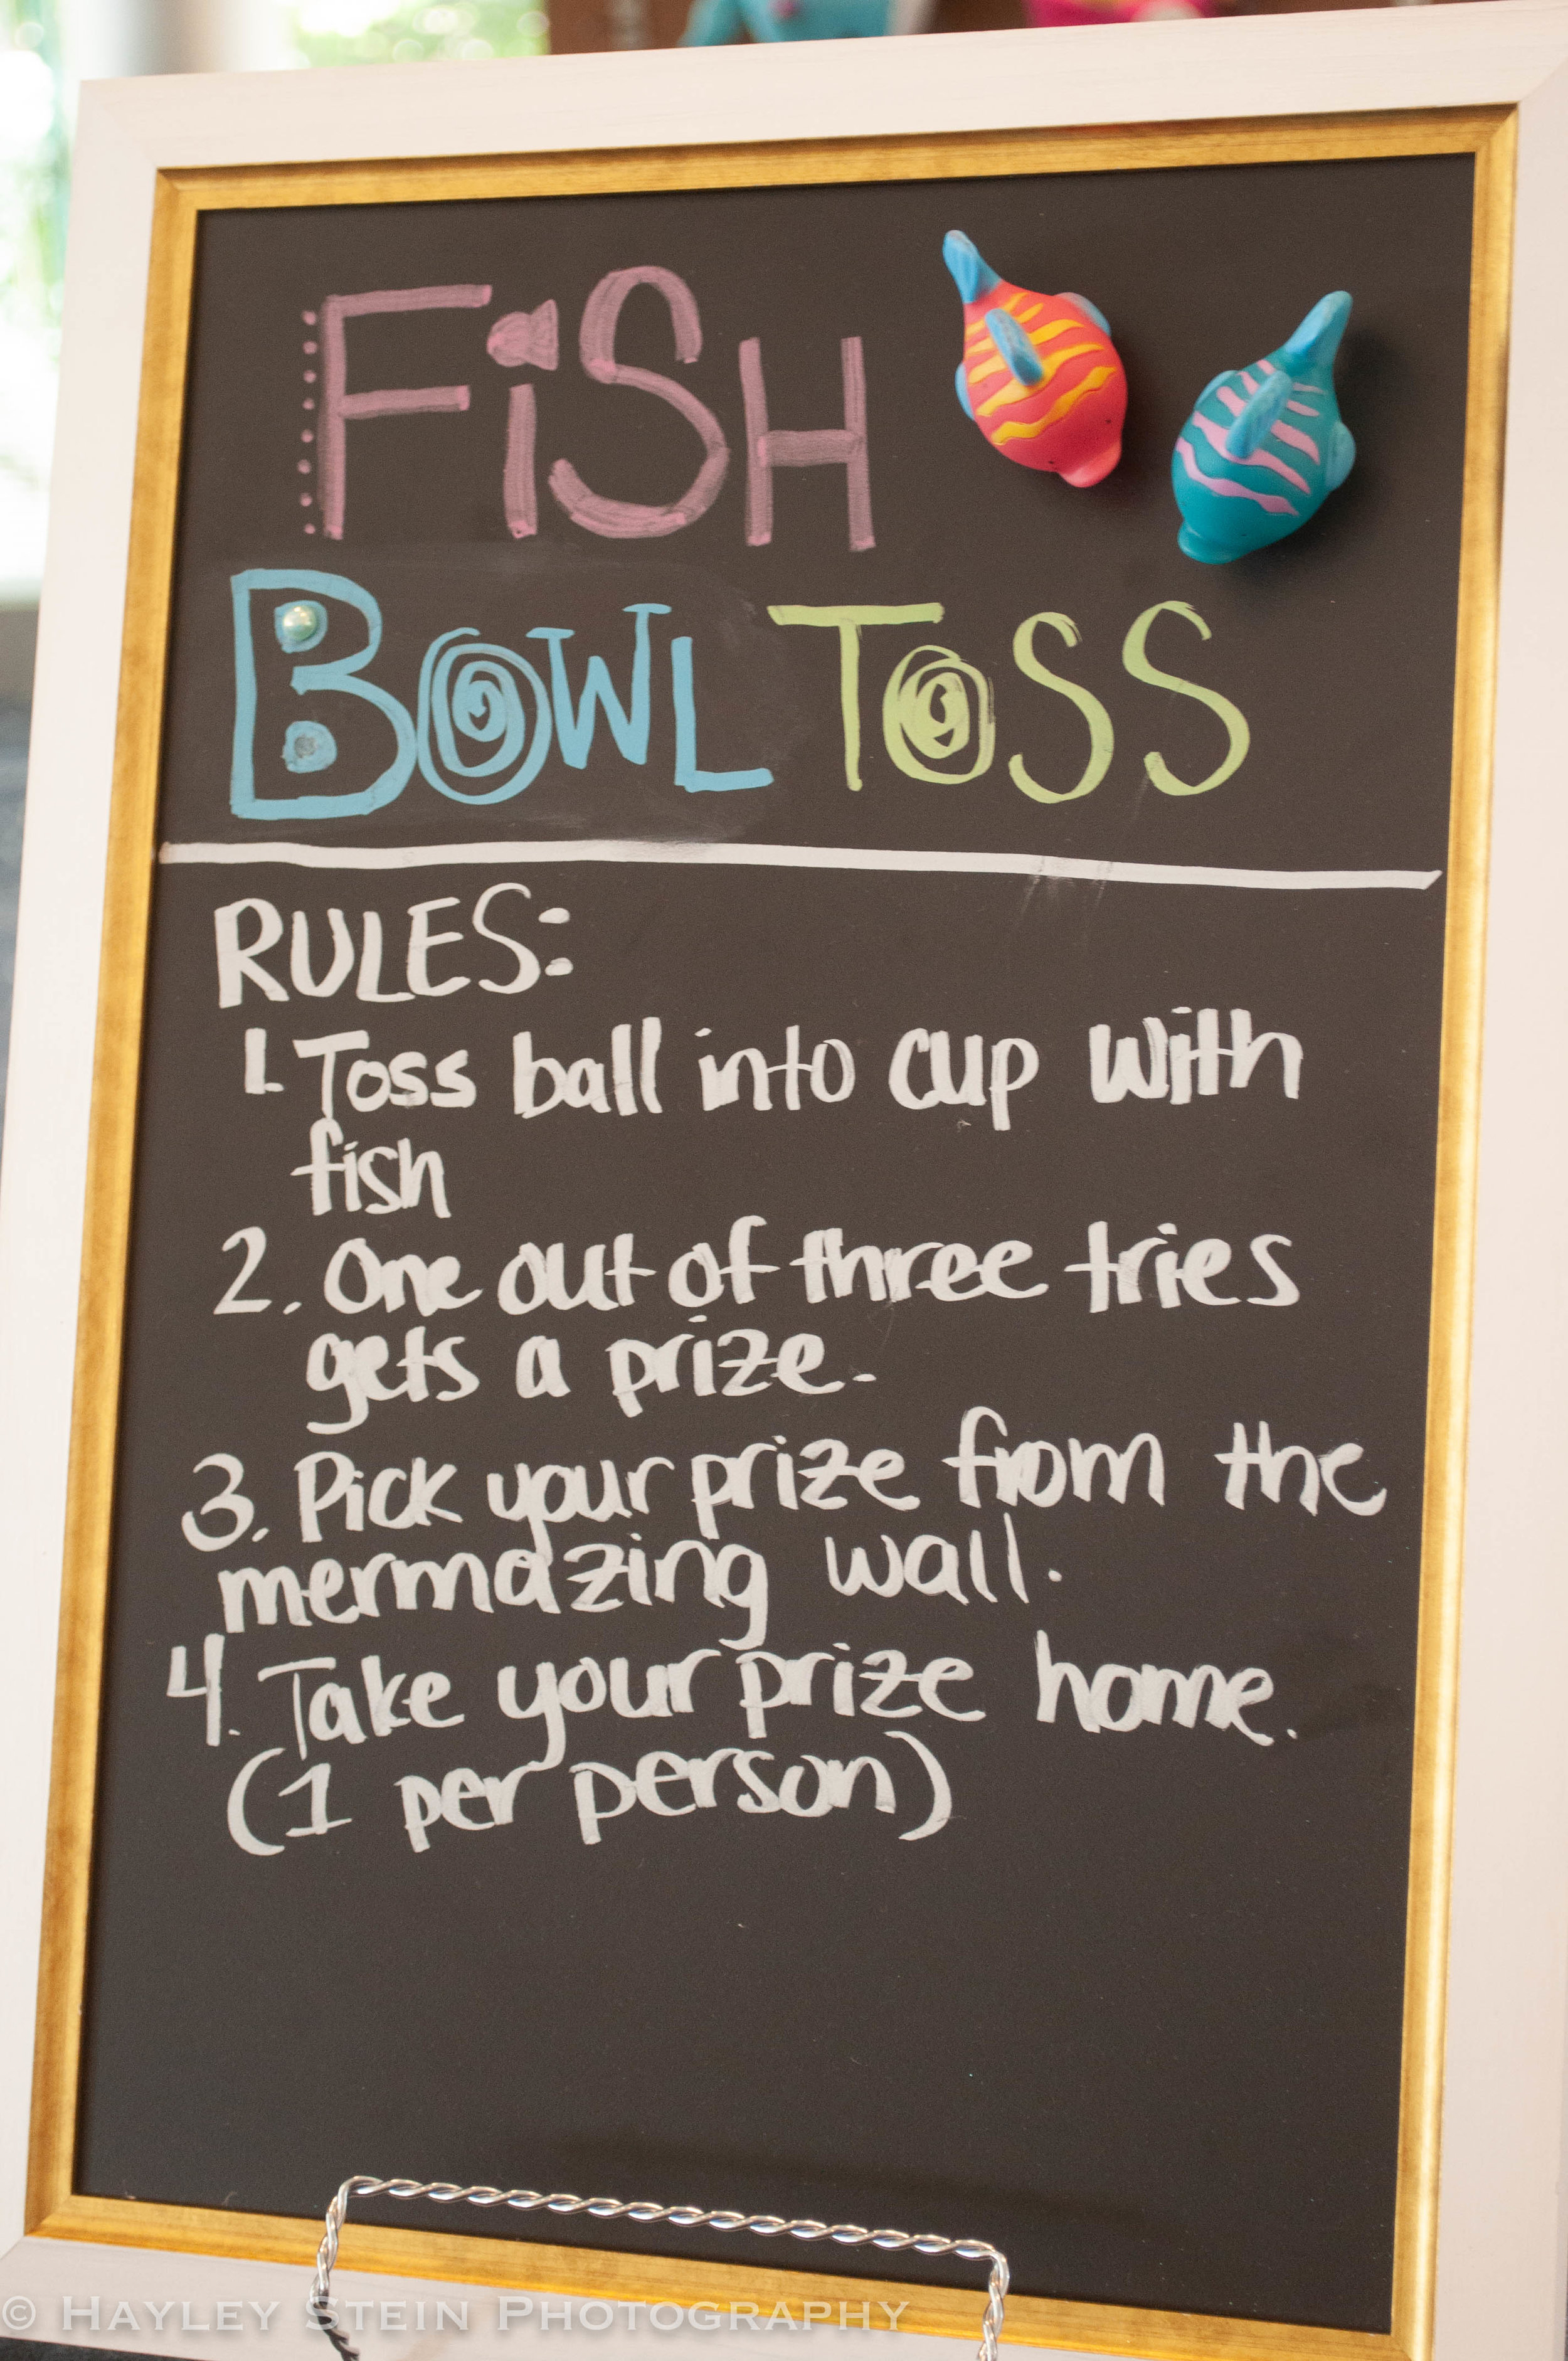 FiSH
BOWL TOSS
RULES:
1. Toss ball into cup with
fish
2. One out of three tries
gets a prize.
3. Pick your prize from the
mermazing wall.
4. Take your prize home.
(1 per person)
© HAYLEY STEIN PHOTOGRAPHY